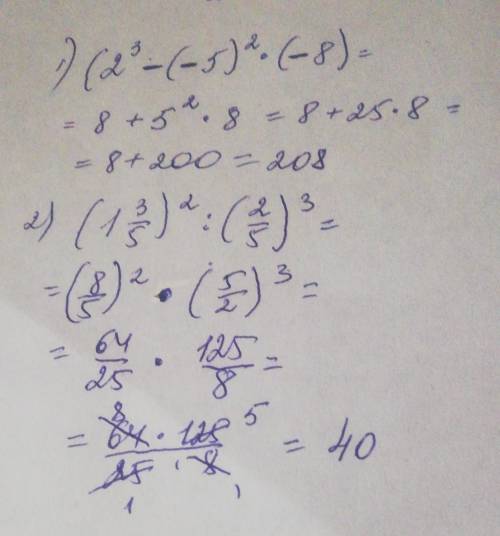 1) (2³ - (-5)² · (-8) =
= 8 + 5² · 8 = 8 + 25 · 8 =
= 8 + 200 = 208
2) (1 3/5)² : (2/5)³ =
= (8/5)² · (5/2)³ =
= 64/25 · 125/8 =
= 64 · 125 / 25 · 8 = 40
8 5
1 1